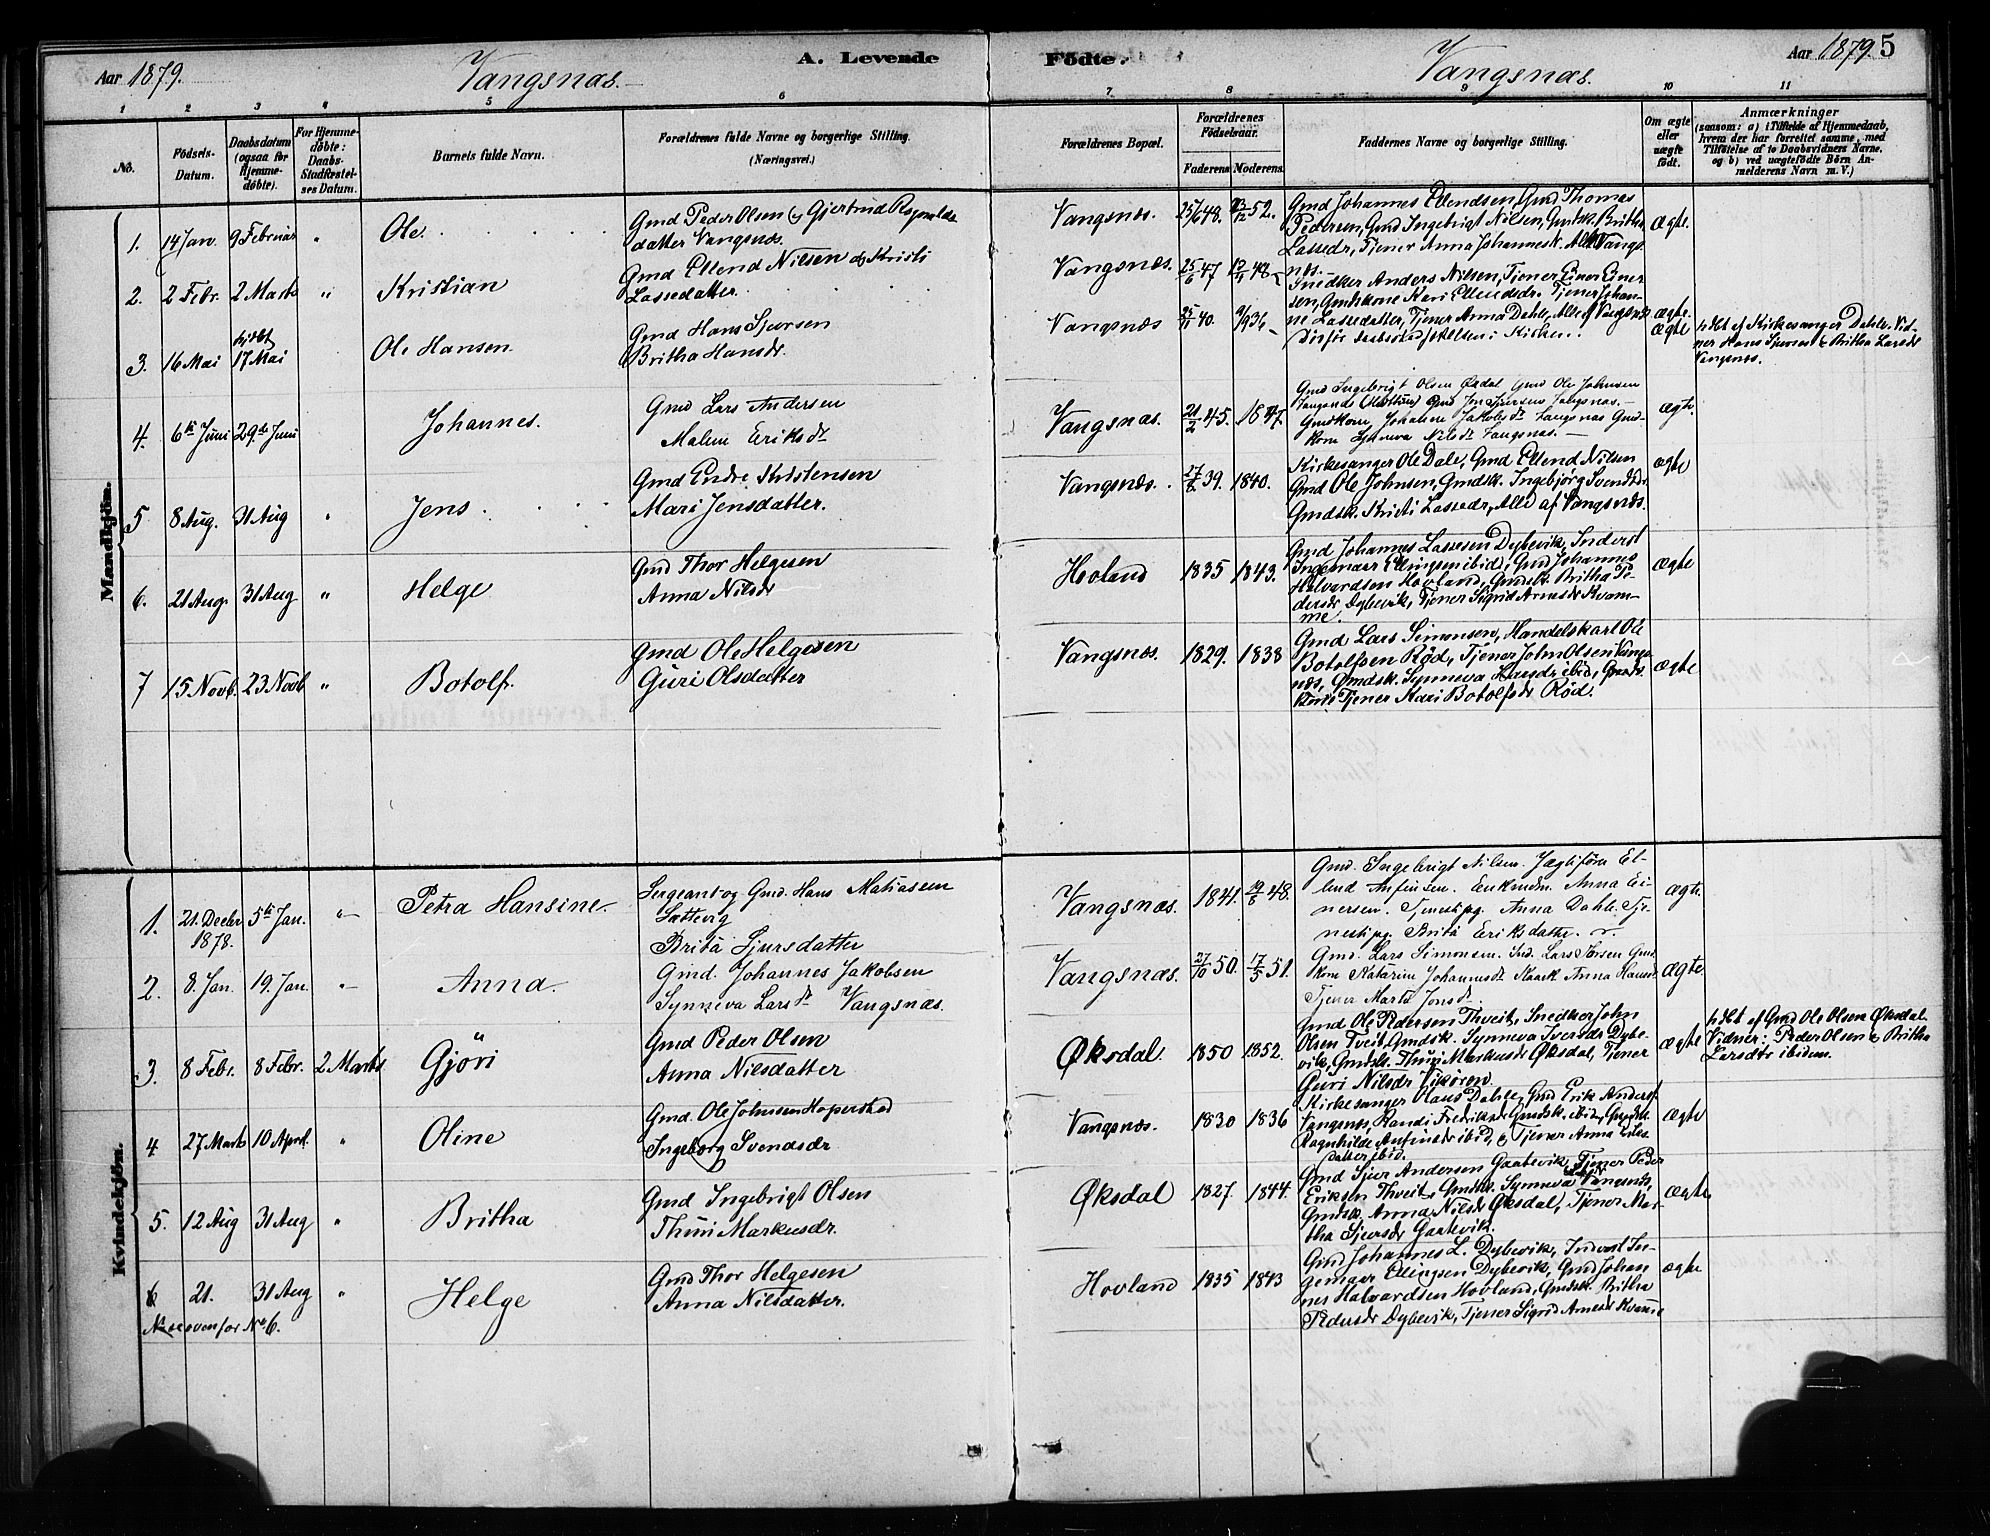 Aar 1879. Vangsnæs. A. Levende Fødte. Vangsnæs. Aar 1879. 5
1 2 3 4 5 6 7 8 9 10 11
No.
Fødsels-Datum.
Daabsdatum (ogsaa for Hjemme-døbte).
For Hjemme-døbte: Daabs-Stadfæstel-ses Datum.
Barnets fulde Navn.
Forældrenes fulde Navne og borgerlige Stilling. (Næringsvei.)
Forældrenes Bopæl.
Forældrenes Fødselsaar.
Faderens Moderens.
Faddernes Navne og borgerlige Stilling.
Om ægte eller uægte født.
Anmærkninger
(saasom: a) i Tilfælde af Hjemmedaab,
hvem der har forrettet samme, med
Tilføielse af to Daabsvidners Navne,
og b) ved uægtefødte Børn An-
melderens Navn m. V.)
Mandkjön.
1. 14 Jan. 9 Februar " Ole.
Gmd Peder Olsen og Gjertrud Ragnvalds
datter Vangsnæs.
Vangsnæs. 25/6 48. 23/12 52.
Gmd Johannes Ellendsen, Gmd Thomas
Pedersen, Gmd Ingebrigt Nilsen, Gmdsk. Britha
Lassedr, Tjener Anna Johannesdr. Alle Vangs-
næs.
ægte.
2. 2 Febr. 2 Marts " Kristian
Gmd Ellend Nilsen og Kristi
Lassedatter.
Vangsnæs. 25/6 47 48
Snedker Anders Nilsen, Tjener Einer Einer
sen, Gmdskone Kari Ellendsdr. Tjener Johan-
ne Lassedatter, Tjener Anna Dahle, Alle af Vangsnæs
ægte.
3. 16 Mai 17 Mai Ole Hansen.
Gmd Hans Sjursen
Britha Hansdr.
Vangsnæs 25/11 40. 9/9 36
i Kirken.
ægte
hdbt af Kirkesanger Dahle. Vid-
ner Hans Sjursen & Britha Larsdr
Vangsnæs.
4. 6te Juni 29de Juni Johannes.
Gmd Lars Andersen
Malene Eriksdr
Vangsnæs. 21/2 45. 1847.
Gmd Ingebrigt Olsen Øxdal Gmd Ole Johnsen
Vangsnæs Gmd Vangsnæs.
Gmdskone Johanne Jakobsdr Vangsnæs Gmd-
kone Synneva Nilsdr Vangsnæs.
ægte.
5 8 Aug. 31 Aug " Jens
Gmd Endre Kristensen
Mari Jensdatter.
Vangsnæs. 27/8 39. 1840.
Kirkesanger Ole Dale, Gmd Ellend Nilsen
Gmd Ole Johnsen, Gmdsk. Ingebjørg Svendsdr.
Gmdsk. Kristi Lassedr, Alle af Vangsnæs.
ægte
6. 21 Aug. 31 Aug " Helge
Gmd Thor Helgesen
Anna Nilsdr
Hovland 1835 1843.
Gmd Johannes Lassesen Dybevik, Inderst
Ingemaar Ellingsen ibid, Gmd Johannes
Halvardsen Hovland, Gmdsk. Britha Pe-
dersdr Dybevik, Tjener Sigrid Arnesdr Kvam-
me.
ægte
7 15 Novb. 23 Novb " Botolf.
Gmd Ole Helgesen
Guri Olsdatter
Vangsnæs. 1829. 1838
Gmd Lars Simonsen, Handelskarl Ole
Botolfsen Röd, Tjener John Olsen Vangs-
næs, Gmdsk. Synneva Hansdr ibid,
Tjener Kari Botolfsdr Röd.
ægte
Kvindekjön.
1. 21. Decbr 1878. 5te Jan. " Petra Hansine.
Sergeant og Gmd. Hans Matiassen
Sætberg
Brita Sjursdatter
Vangsnæs. 1841. 19/8 48.
Gmd. Ingebrigt Nilsen. Jægtfører El-
lend Anfinsen. Enkemdm. Anna Ei-
nersen. Tjenestpg. Anna Dahle. Tje-
nestpg. Brita Eriksdatter.
ægte
2. 8 Jan. 19. Jan. " Anna.
Gmd. Johannes Jakobsen
Synneva Larsdr Vangsnæs.
Vangsnæs. 27/10 50. 17/5 51.
Gmd. Lars Simonsen. Ind. Lars Gmd-
kone Katarine Johannesdr Anna Hansdr
Tjener Marta Jonsdr
ægte
3. 8 Febr. 8 Febr. 2 Marts Gjöri
Gmd Peder Olsen
Anna Nilsdatter
Øksdal. 1850 1852.
Gmd Ole Pedersen Thveit, Snedker John
Olsen Tveit, Gmdsk. Synneva Iversdr Dybe-
vik, Gmdsk. Thuri Markusdr Øksdal, Tjener
Guri Nilsdr Vikören.
ægte
hdbt af Gmd Ole Olsen Øksdal.
Vidner: Peder Olsen & Britha
Larsdtr ibidem.
4 27 Marts 10 April. " Oline
Gmd. Ole Johnsen Hoperstad
Ingeborg Svendsdr
Vangsnæs. 1830 1836
Kirkesanger Claus Dahle, Gmd Erik Anders.
Vangsnæs, Randi Fredriksdr Gmdsk. ibid, Gmdsk
Ragnhilde Anfinsdr ibid, & Tjener Anna
datter ibid.
ægte
5. 12 Aug 31 Aug " Britha
Gmd Ingebrigt Olsen
Thuri Markusdr.
Øksdal 1827. 1844.
Gmd Sjur Andersen Gaatevik, Tjener Peder
Eriksen Thveit, Gmdsk. Synneva Vangsnæs,
Gmdsk. Anna Nilsdr Øksdal, Tjener Mar-
tha Sjursdr Gaatevik.
ægte
6 21. 31 Aug " Helge
Gmd Thor Helgesen
Anna Nilsdatter.
Hovland 1835 1843
Gmd Johannes L. Dybevik, Inderst In-
gemaar Ellingsen Dybevik, Gmd Johan
nes Halvardsen Hovland, Gmdsk. Britha
Pedersdr Dybevik, Tjener Sigrid Arnesdr Kvamme
ægte
ovenfor No 6.